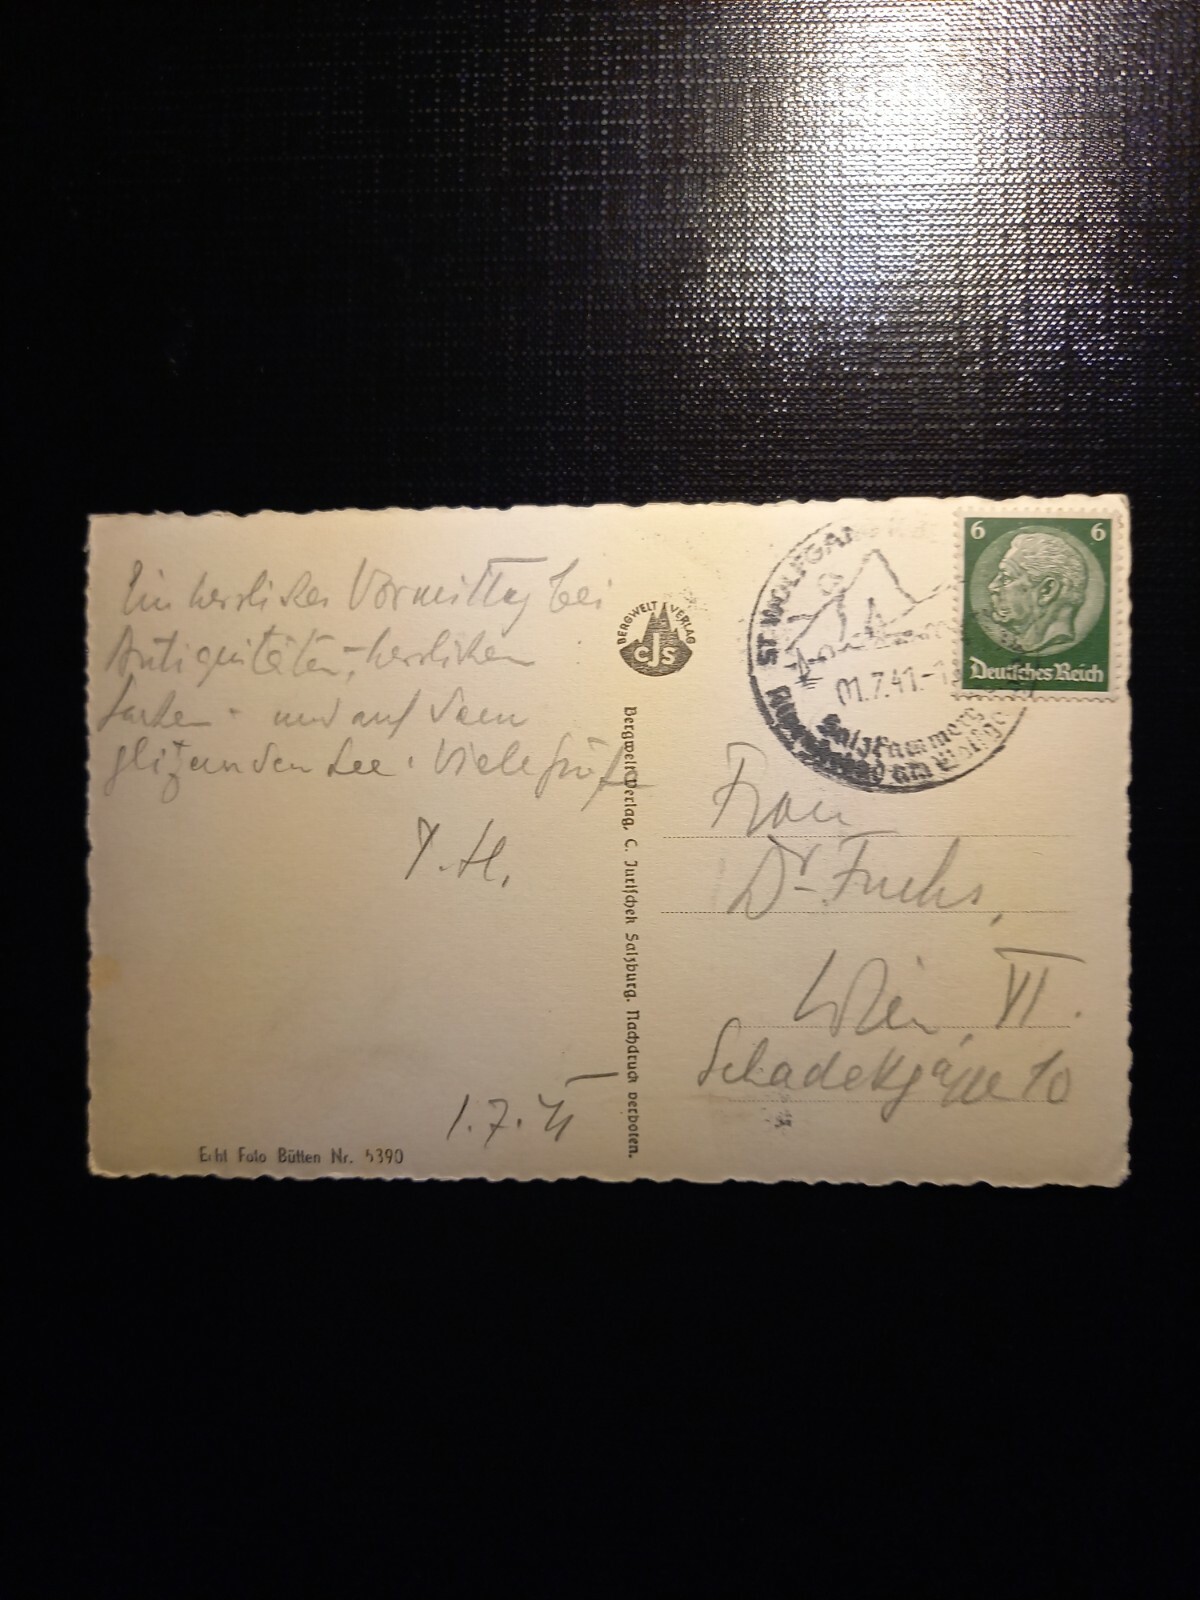 Ein herrlicher Vormittag bei
Antiquitäten, herrlichen
Sachen - und auf dem
glitzernden See. Viele Grüße
H.
1.7.41
Echt Foto Bütten Nr. 5390
BERGWELT VERLAG
CJS
Bergwelt Verlag, C. Jurischek Salzburg. Nachdruck verboten.
ST. WOLFGANG
01.7.41.-
Salzkammergut
6 6
Deutsches Reich
Frau
Dr Fuchs,
Wien VI.
Schadekgasse 10